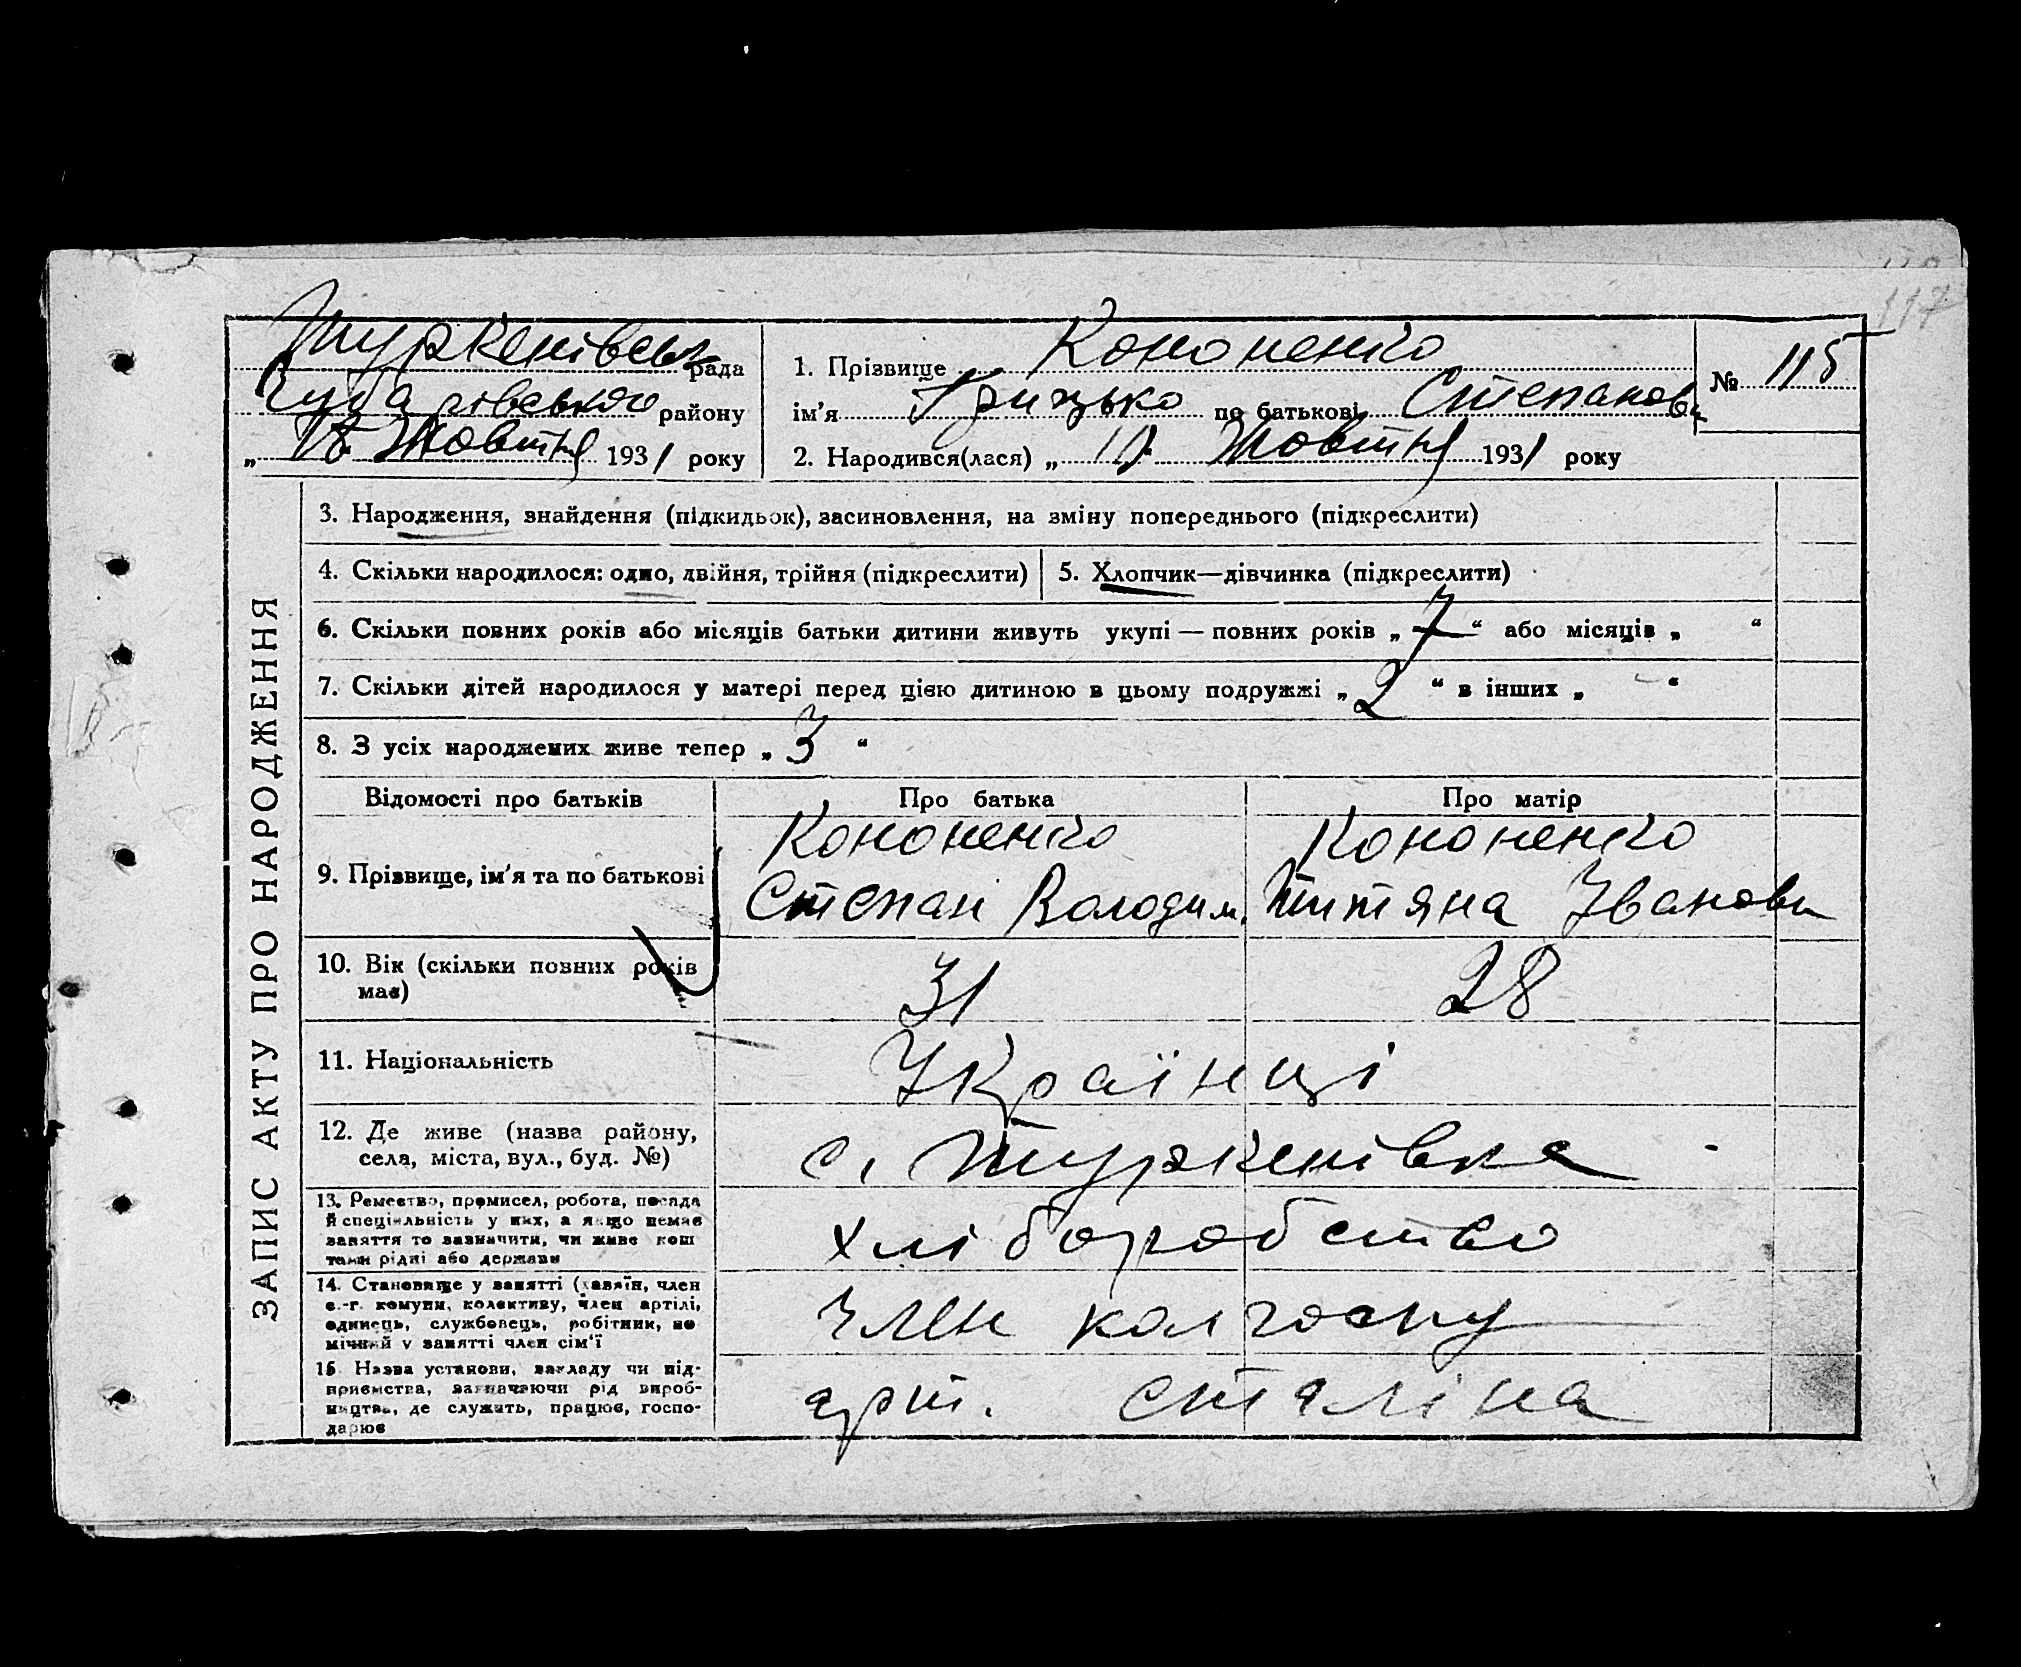 117
Туркенівськ рада
Чубарівського району
„ 18 Жовтня 1931 року
1. Прізвище Кононенко
ім'я Грицько по батькові Степанови
2. Народився(лася) „ 10 Жовтня 1931 року
№ 115
ЗАПИС АКТУ ПРО НАРОДЖЕННЯ
3. Народження, знайдення (підкидьок), засиновлення, на зміну попереднього (підкреслити)
4. Скільки народилося: одно, двійня, трійня (підкреслити) 5. Хлопчик—дівчинка (підкреслити)
6. Скільки повних років або місяців батьки дитини живуть укупі — повних років „ 7 “ або місяців „ “
7. Скільки дітей народилося у матері перед цією дитиною в цьому подружжі „ 2 “ в інших „ – “
8. З усіх народжених живе тепер „ 3 “
Відомості про батьків Про батька Про матір
9. Прізвище, ім'я та по батькові
Кононенко
Степан Володим.
Кононенко
Титяна Іванови
10. Вік (скільки повних років
має)
31 28
11. Національність Українці
12. Де живе (назва району,
села, міста, вул., буд. №)
с. Туркенівка
13. Ремество, промисел, робота, посада
й спеціяльність у них, а якщо немає
заняття то зазначити, чи живе кош
тами рідні або держави
хліборобство
14. Становище у занятті (хазяїн, член
с.-г. комуни, колективу, член артілі,
одинець, службовець, робітник, по
мічний у занятті член сім'ї
член колгоспу
15. Назва установи, закладу чи під-
приємства, зазначаючи рід вироб-
ництва, де служить, працює, госпо-
дарює
арт. Сталіна